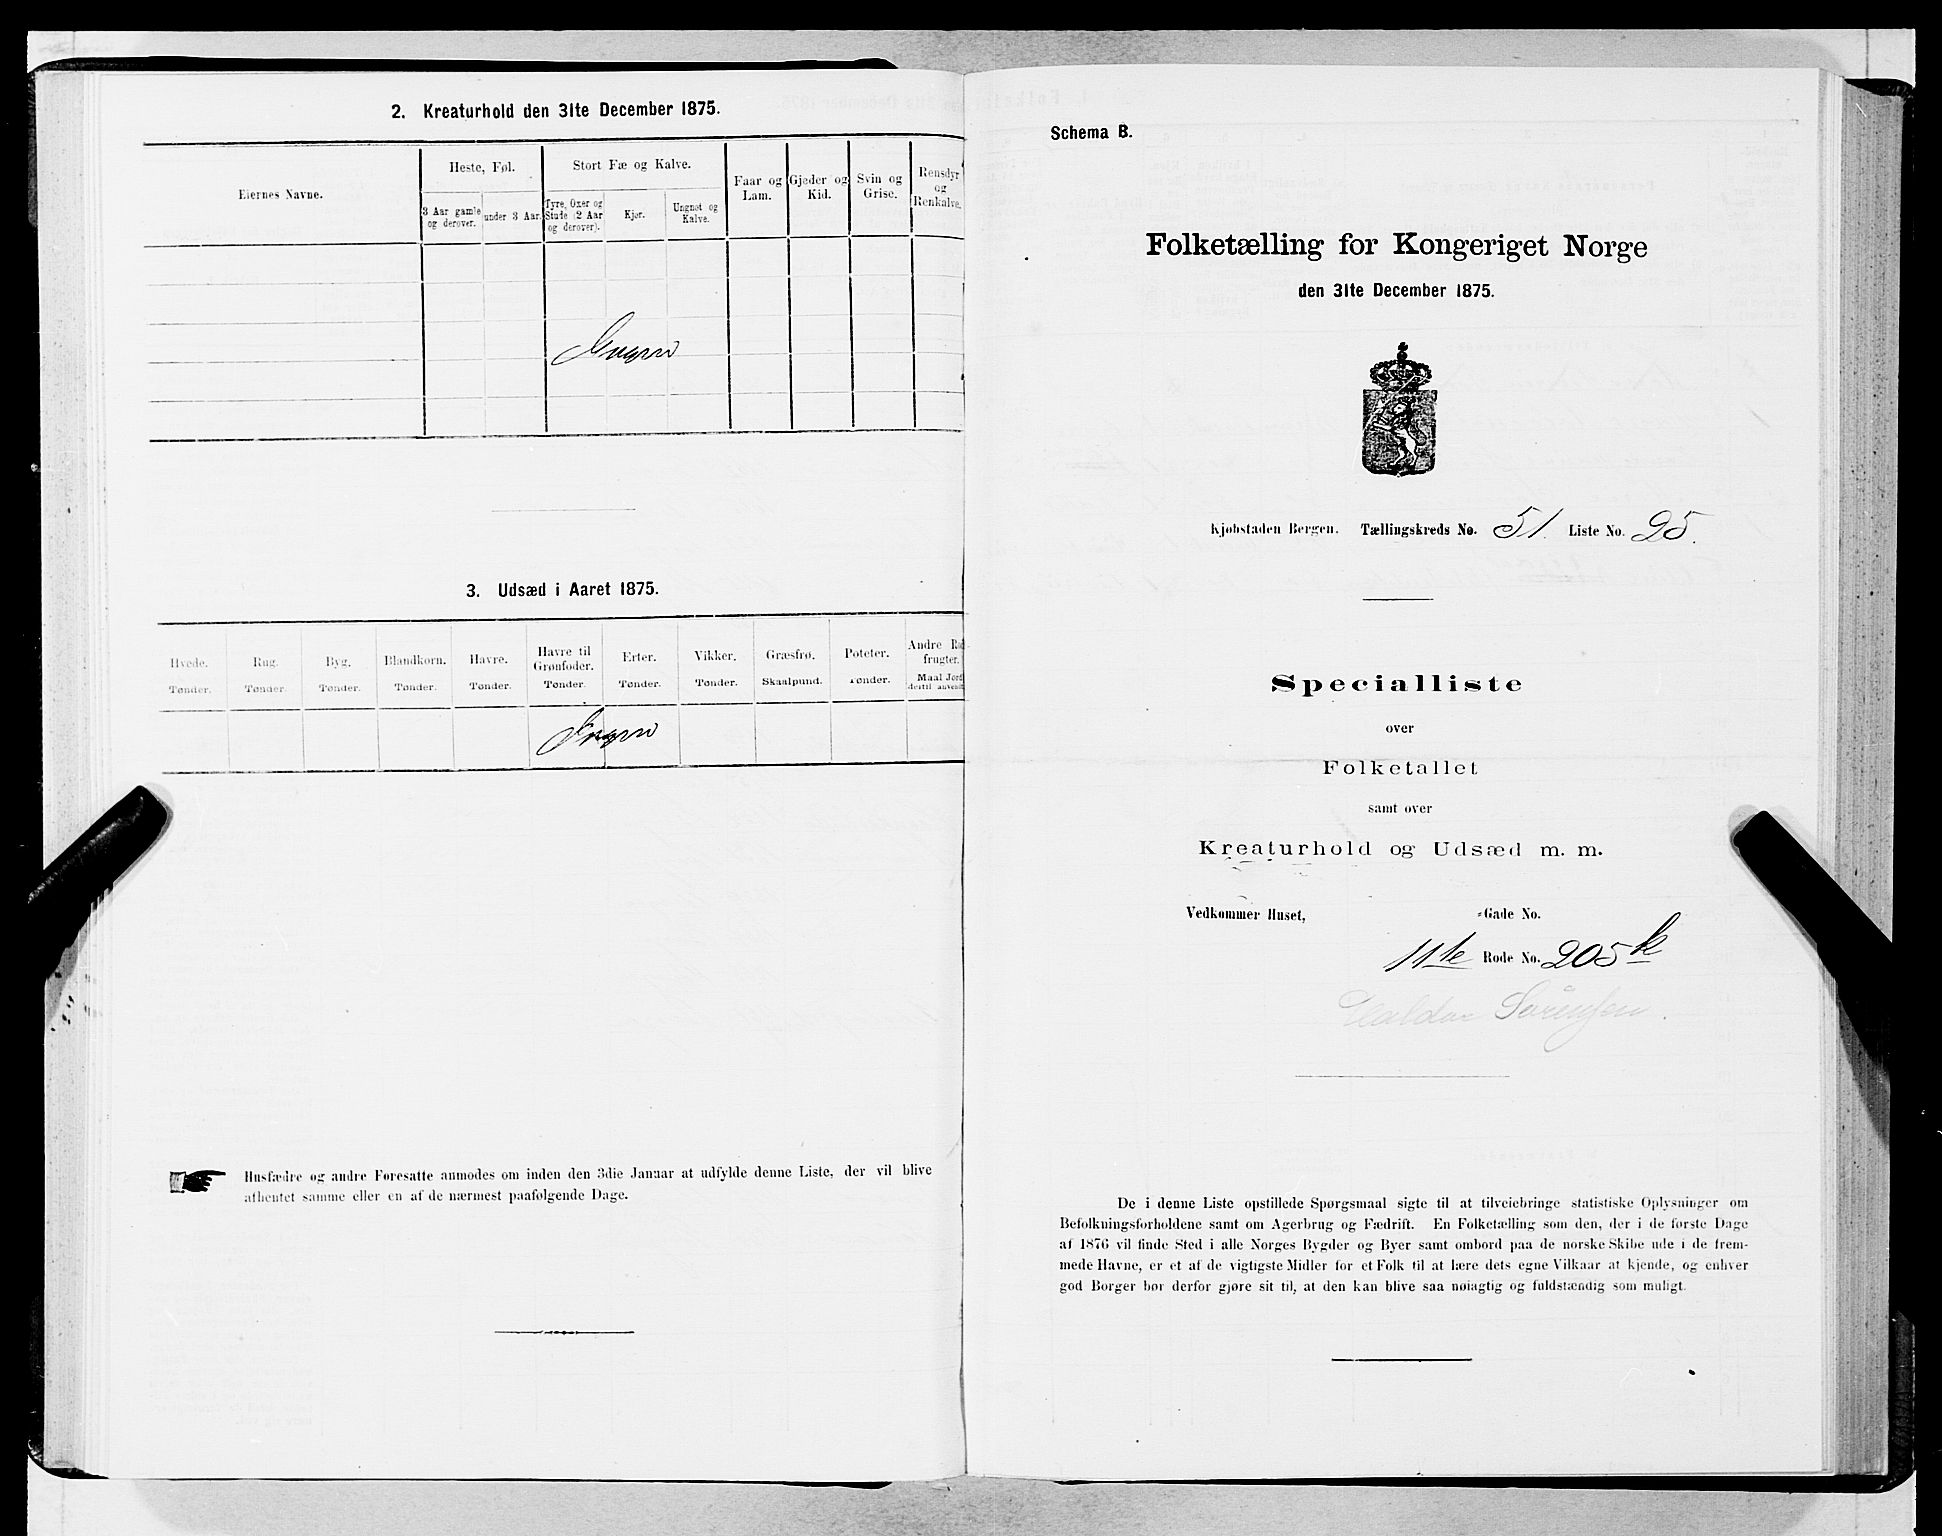 2. Kreaturhold den 31te December 1875.
Eiernes Navne.
Heste, Føl.
3 Aar gamle og derover.
under 3 Aar.
Stort Fæ og Kalve.
Tyre, Oxer og Stude (2 Aar og derover).
Kjør.
Ungnøt og Kalve.
Faar og Lam.
Gjeder og Kid.
Svin og Grise.
Rensdyr og Renkalve.
Ingen
3. Udsæd i Aaret 1875.
Hvede. Tønder.
Rug. Tønder.
Byg. Tønder.
Blandkorn. Tønder.
Havre. Tønder.
Havre til Grønfoder. Tønder.
Erter. Tønder.
Vikker. Tønder.
Græsfrø. Skaalpund.
Poteter. Tønder.
Andre Rod
frugter.
Maal Jord
dertil anvendt
Ingen
Husfædre og andre Foresatte anmodes om inden den 3die Januar at udfylde denne Liste, der vil blive
afhentet samme eller en af de nærmest paafølgende Dage.
Schema B.
Folketælling for Kongeriget Norge
den 31te December 1875.
Kjøbstaden Bergen. Tællingskreds No. 51. Liste No. 25.
Specialliste
over
Folketallet
samt over
Kreaturhold og Udsæd m. m.
Vedkommer Huset, Gade No.
11te Rode No. 205k
Sørensen.
De i denne Liste opstillede Spørgsmaal sigte til at tilveiebringe statistiske Oplysninger om
Befolkningsforholdene samt om Agerbrug og Fædrift. En Folketælling som den, der i de første Dage
af 1876 vil finde Sted i alle Norges Bygder og Byer samt ombord paa de norske Skibe ude i de frem-
mede Havne, er et af de vigtigste Midler for et Folk til at lære dets egne Vilkaar at kjende, og enhver
god Borger bør derfor gjøre sit til, at den kan blive saa nøiagtig og fuldstændig som muligt.